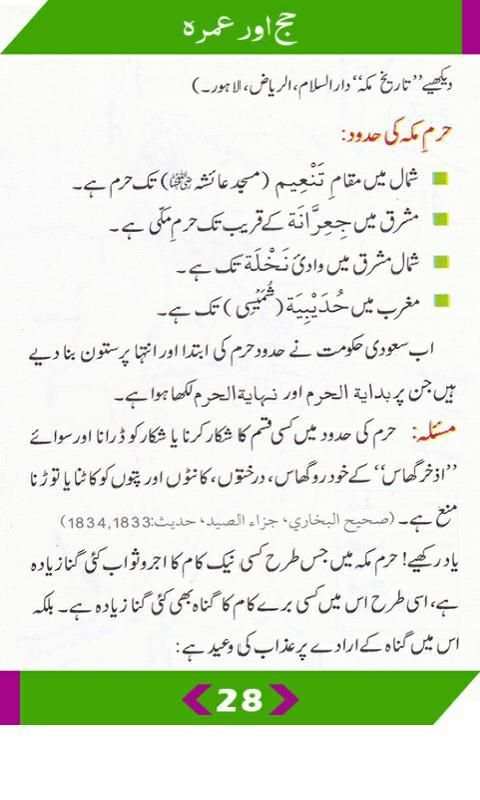 حج اور عمرہ
دیکھیے ’’تاریخ مکہ‘‘ دارالسلام، الریاض، لاہور۔)
حرمِ مکہ کی حدود:
شمال میں مقامِ تَنْعِیم (مسجد عائشہ رضی اللہ عنہا) تک حرم ہے۔
مشرق میں جِعِرَّانَة کے قریب تک حرمِ مکّی ہے۔
شمال مشرق میں وادیٔ نَخْلَة تک ہے۔
مغرب میں حُدَیْبِیَة (شُمَیْسِی) تک ہے۔
اب سعودی حکومت نے حدودِ حرم کی ابتدا اور انتہا پر ستون بنا دیے
ہیں جن پر بداية الحرم اور نهاية الحرم لکھا ہوا ہے۔
مسئلہ: حرم کی حدود میں کسی قسم کا شکار کرنا یا شکار کو ڈرانا اور سوائے
’’اذخر گھاس‘‘ کے خود رو گھاس، درختوں، کانٹوں اور پتوں کو کاٹنا یا توڑنا
منع ہے۔ (صحيح البخاري، جزاء الصيد، حديث:1834,1833)
یاد رکھیے! حرم مکہ میں جس طرح کسی نیک کام کا اجر و ثواب کئی گنا زیادہ
ہے، اسی طرح اس میں کسی برے کام کا گناہ بھی کئی گنا زیادہ ہے۔ بلکہ
اس میں گناہ کے ارادے پر عذاب کی وعید ہے:
28